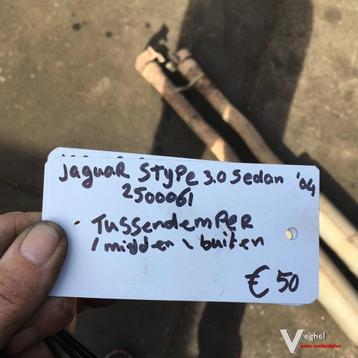 Jaguar Stype 3.0 Sedan '04
2500061
- Tussendemper
/ midden \ buiten
€ 50
Veghel